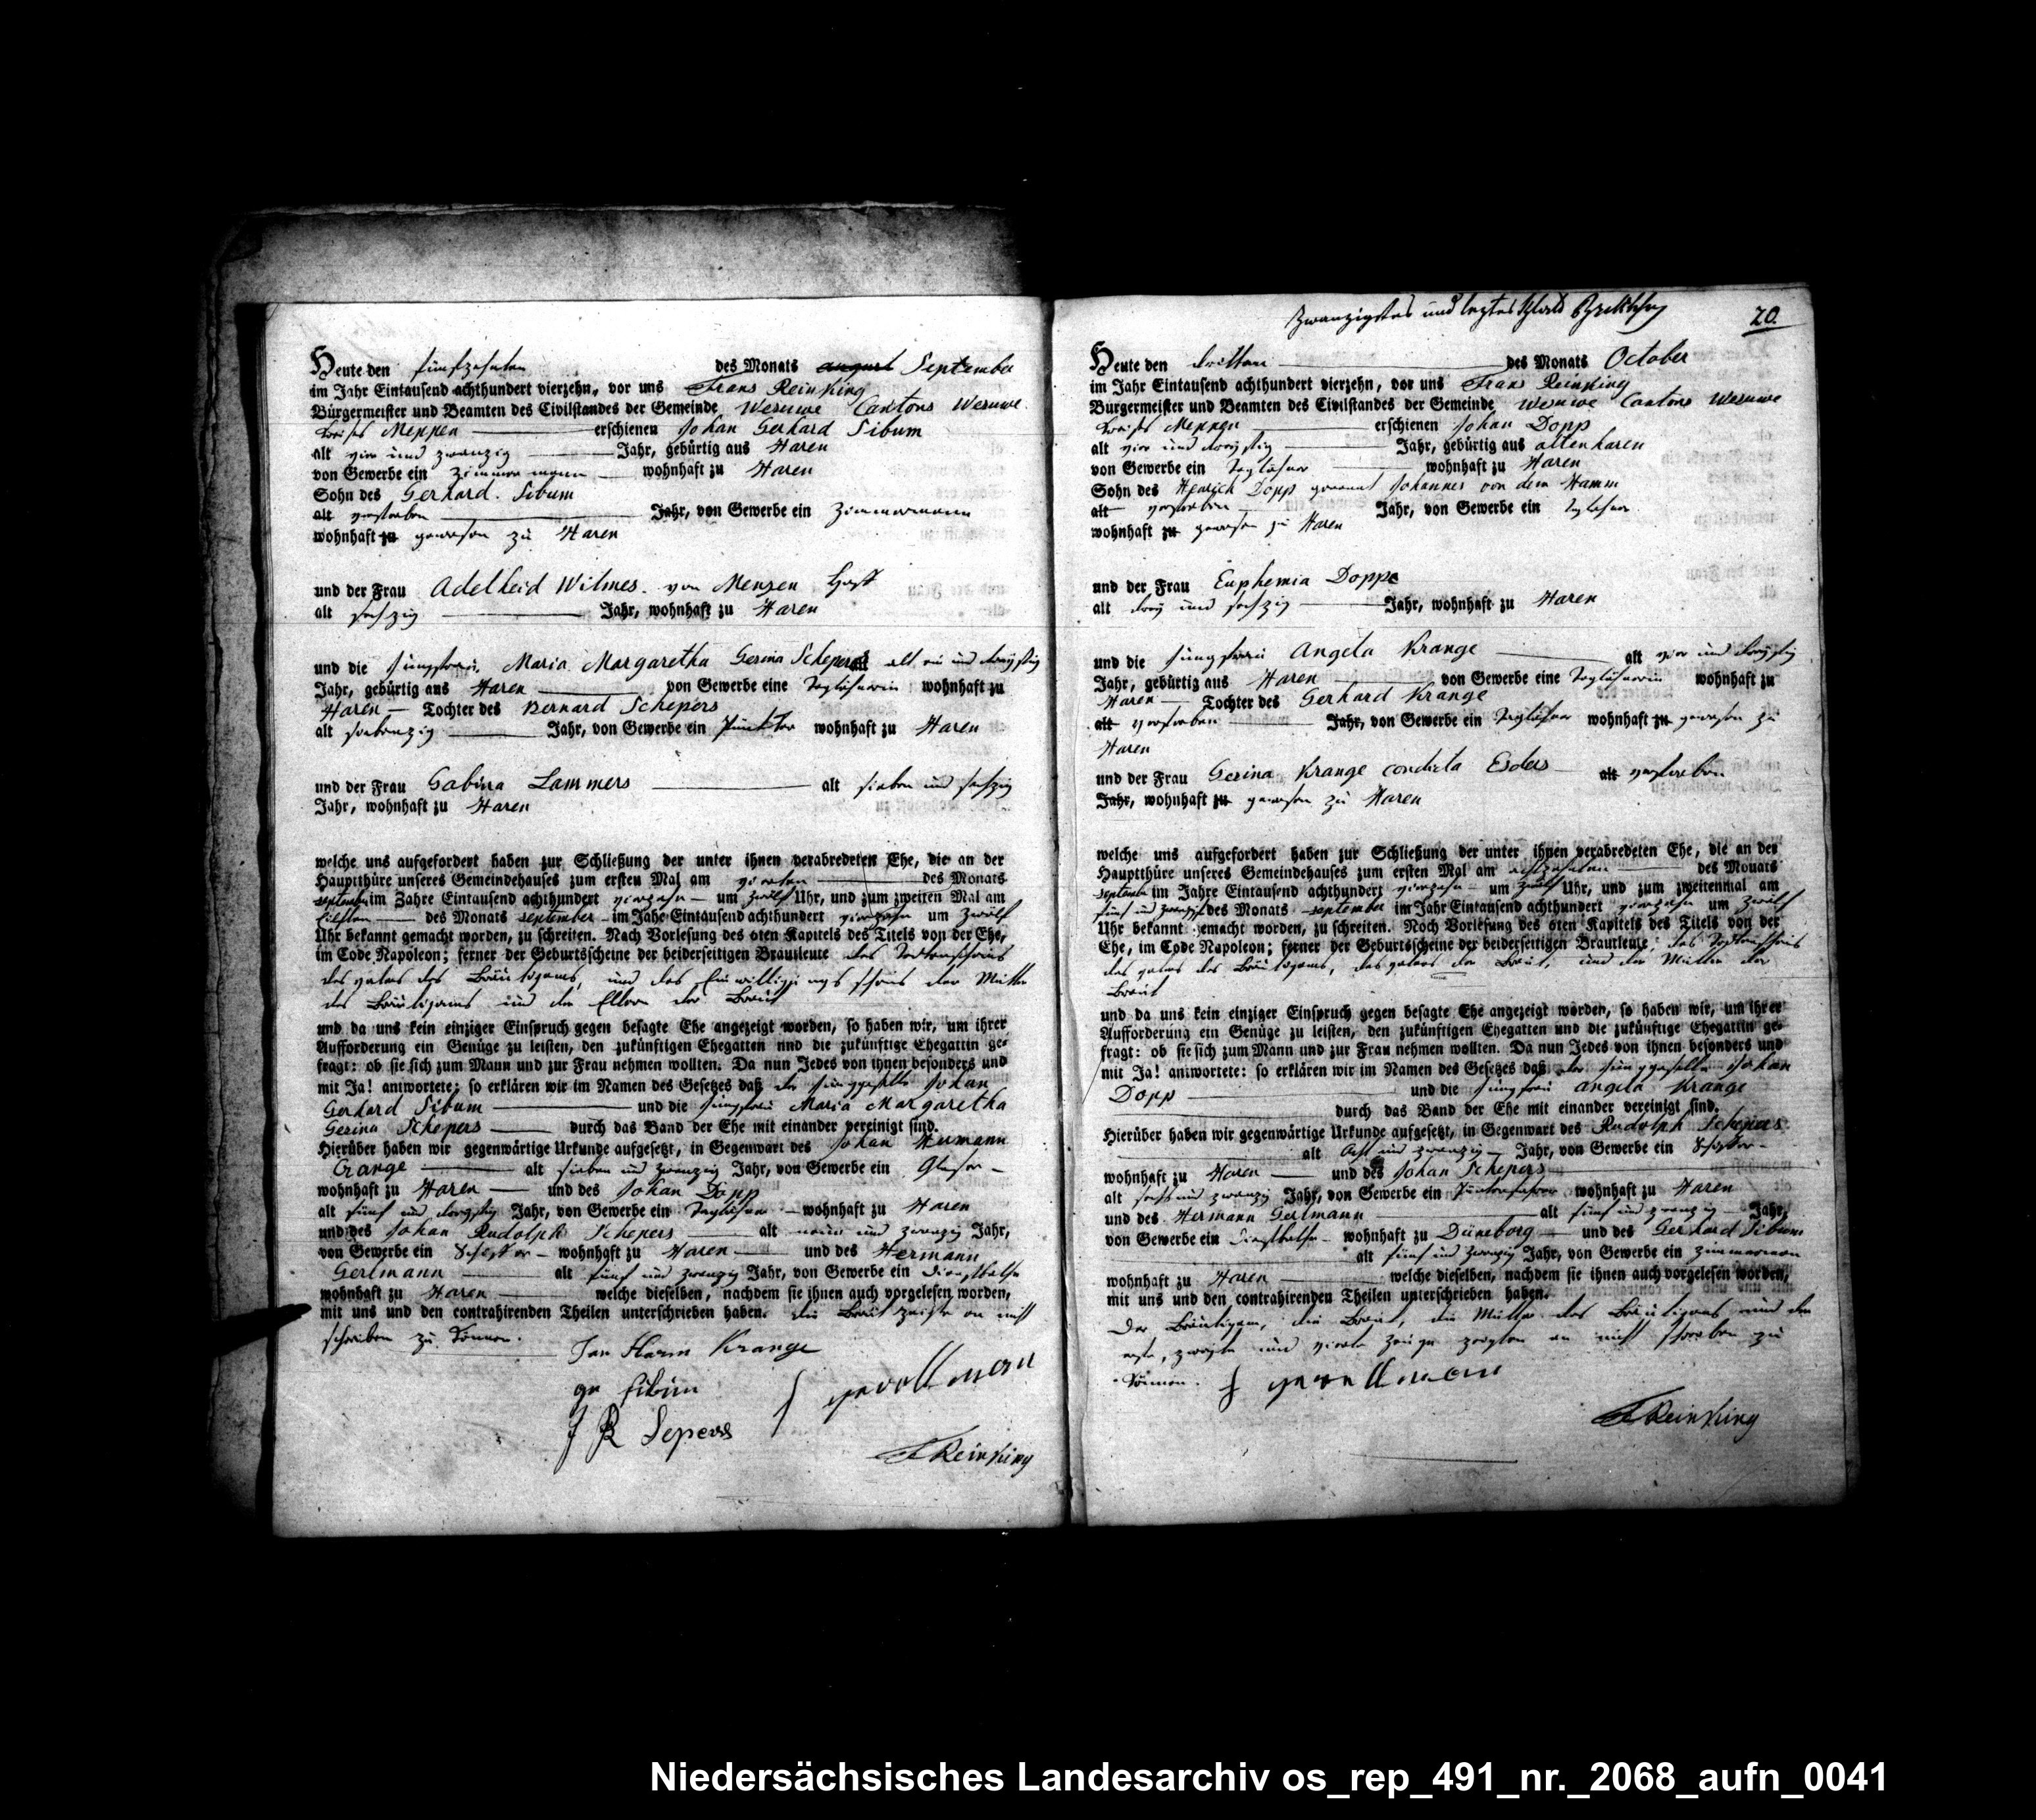 Heute den fünfzehnten des Monats august September
im Jahr Eintausend achthundert vierzehn, vor uns Frans Reinking
Bürgermeister und Beamten des Civilstandes der Gemeinde Wesuwe Cantons Wesuwe
Kreises Meppen erschienen Johan Gerhard Sibum
alt vier und zwanzig Jahr, gebürtig aus Haren
von Gewerbe ein Zimmermann wohnhaft zu Haren
Sohn des Gerhard. Sibum
alt verstorben Jahr, von Gewerbe ein Zimmermann
wohnhaft zu gewesen zu Haren
und der Frau Adelheid Wilmes. von Menzen
alt sechzig Jahr, wohnhaft zu Haren
und die Jungfrau Maria Margaretha Gesina Schepers alt ein und dreyßig
Jahr, gebürtig aus Haren von Gewerbe eine Taglöhnerin wohnhaft zu
Haren Tochter des Bernard Schepers
alt siebenzig Jahr, von Gewerbe ein wohnhaft zu Haren
und der Frau Sabina Lammers alt sieben und sechzig
Jahr, wohnhaft zu Haren
welche uns aufgefordert haben zur Schließung der unter ihnen verabredeten Ehe, die an der
Hauptthüre unseres Gemeindehauses zum ersten Mal am vierten des Monats
september im Jahre Eintausend achthundert vierzehn um zwölf Uhr, und zum zweiten Mal am
Eilften des Monats september im Jahr Eintausend achthundert vierzehn um zwölf
Uhr bekannt gemacht worden, zu schreiten. Nach Vorlesung des 6ten Kapitels des Titels von der Ehe,
im Code Napoleon; ferner der Geburtsscheine der beiderseitigen Brautleute des Todtenscheins
des vaters des Bräutigams, und des Einwilligungsscheins der Mutter
des Bräutigams und der Eltern der Braut
und da uns kein einziger Einspruch gegen besagte Ehe angezeigt worden, so haben wir, um ihrer
Aufforderung ein Genüge zu leisten, den zukünftigen Ehegatten und die zukünftige Ehegattin ge-
fragt: ob sie sich zum Mann und zur Frau nehmen wollten. Da nun Jedes von ihnen besonders und
mit Ja! antwortete; so erklären wir im Namen des Gesetzes daß der Junggeselle Johan
Gerhard Sibum und die Jungfrau Maria Margaretha
Gesina Schepers durch das Band der Ehe mit einander vereinigt sind.
Hierüber haben wir gegenwärtige Urkunde aufgesetzt, in Gegenwart des Johan Hermann
Crange alt sieben und zwanzig Jahr, von Gewerbe ein Glaser
wohnhaft zu Haren und des Johan Dopp
alt fünf und dreyßig Jahr, von Gewerbe ein Taglöhner wohnhaft zu Haren
und des Johan Rudolph Schepers alt neun und zwanzig Jahr,
von Gewerbe ein Schuster wohnhaft zu Haren und des Hermann
Gerlmann alt fünf und zwanzig Jahr, von Gewerbe ein
wohnhaft zu Haren welche dieselben, nachdem sie ihnen auch vorgelesen worden,
mit uns und den contrahirenden Theilen unterschrieben haben. die Braut zeigte an nicht
schreiben zu können.
Jan Harm Krange
ge Sibum
J R Sepers
F Reinking
Zwanzigstes und leztes Blatt
20.
Heute den dritten des Monats October
im Jahr Eintausend achthundert vierzehn, vor uns Frans Reinking
Bürgermeister und Beamten des Civilstandes der Gemeinde Wesuwe Cantons Wesuwe
Kreises Meppen erschienen Johan Dopp
alt vier und dreyßig Jahr, gebürtig aus altenharen
von Gewerbe ein Taglöhner wohnhaft zu Haren
Sohn des Henrich Dopp genannt Johannes von dem Hamm
alt verstorben Jahr, von Gewerbe ein Taglöhner
wohnhaft zu gewesen zu Haren
und der Frau Euphemia Doppe
alt drey und sechzig Jahr, wohnhaft zu Haren
und die Jungfrau Angela Krange alt vier und dreyßig
Jahr, gebürtig aus Haren von Gewerbe eine Taglöhnerin wohnhaft zu
Haren Tochter des Gerhard Krange
alt verstorben Jahr, von Gewerbe ein Taglöhner wohnhaft zu gewesen zu
Haren
und der Frau Gesina Krange condicta Esders alt verstorben
Jahr, wohnhaft zu gewesen zu Haren
welche uns aufgefordert haben zur Schließung der unter ihnen verabredeten Ehe, die an der
Hauptthüre unseres Gemeindehauses zum ersten Mal am achtzehnten des Monats
september im Jahre Eintausend achthundert vierzehn um zwölf Uhr, und zum zweitenmal am
fünf und zwanzigsten des Monats september im Jahr Eintausend achthundert vierzehn um zwölf
Uhr bekannt gemacht worden, zu schreiten. Noch Vorlesung des 6ten Kapitels des Titels von der
Ehe, im Code Napoleon; ferner der Geburtsscheine der beiderseitigen Brautleute; des Todtenscheins
des vaters des Bräutigams, des vaters der Braut, und der Mutter der
Braut
und da uns kein einziger Einspruch gegen besagte Ehe angezeigt worden, so haben wir, um ihrer
Aufforderung ein Genüge zu leisten, den zukünftigen Ehegatten und die zukünftige Ehegattin ge-
fragt: ob sie sich zum Mann und zur Frau nehmen wollten. Da nun Jedes von ihnen besonders und
mit Ja! antwortete: so erklären wir im Namen des Gesetzes daß der Junggeselle Johan
Dopp und die Jungfrau Angela Krange
durch das Band der Ehe mit einander vereinigt sind.
Hierüber haben wir gegenwärtige Urkunde aufgesetzt, in Gegenwart des Rudolph Schepers
alt Acht und zwanzig Jahr, von Gewerbe ein Schuster
wohnhaft zu Haren und des Johan Schepers
alt sechs und zwanzig Jahr, von Gewerbe ein wohnhaft zu Haren
und des Hermann Gerlmann alt fünf und zwanzig Jahr,
von Gewerbe ein wohnhaft zu Düneborg und des Gerhard Sibum
alt fünf und zwanzig Jahr, von Gewerbe ein Zimmerman
wohnhaft zu Haren welche dieselben, nachdem sie ihnen auch vorgelesen worden,
mit uns und den contrahirenden Theilen unterschrieben haben.
Der Bräutigam, die Braut, die Mutter des Bräutigams und der
erste, zweyte und vierte Zeuge zeigten an nicht schreiben zu
können.
F Reinking
Niedersächsisches Landesarchiv os_rep_491_nr._2068_aufn_0041